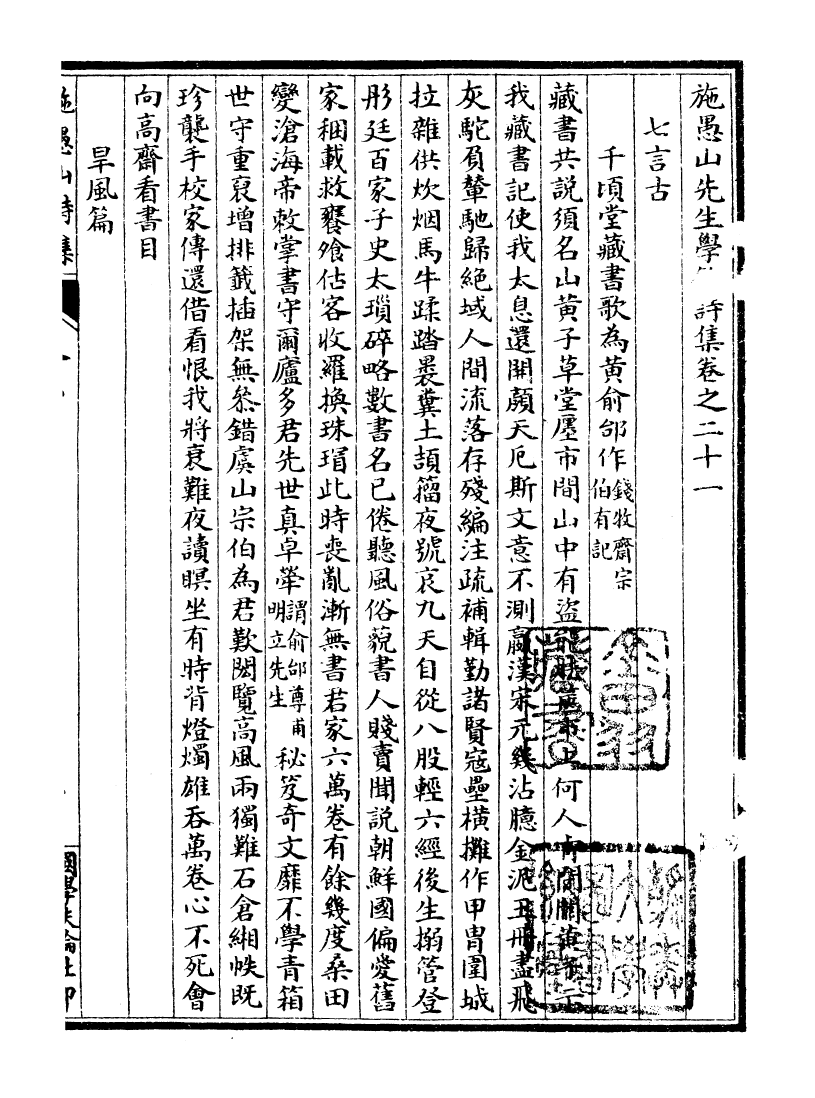 施愚山先生學詩集卷之二十一
七言古
千頃堂藏書歌為黃俞邰作錢牧齋宗伯有記
藏書共説須名山黃子草堂廛市間山中有盜何人
我藏書記使我太息還開顏天厄斯文意不測嬴漢宋元幾沾臆金泥玉冊盡飛
灰駝負輦馳歸絕域人間流落存殘編注疏補輯勤諸賢寇壘橫攤作甲冑圍城
拉雜供炊烟馬牛蹂踏裹糞土頡籀夜號哀九天自從八股輕六經後生搦管登
彤廷百家子史太瑣碎略數書名已倦聽風俗藐書人賤賣聞説朝鮮國偏愛舊
家稛載救饔飧估客收羅換珠瑁此時喪亂漸無書君家六萬卷有餘幾度桑田
變滄海帝敕掌書守爾廬多君先世真卓犖謂俞邰尊甫明立先生秘笈奇文靡不學青箱
世守重裒增排籤插架無叅錯虞山宗伯為君歎閎覽高風兩獨難石倉緗帙既
珍襲手校家傳還借看恨我將衰難夜讀瞑坐有時背燈燭雄吞萬卷心不死會
向高齋看書目
旱風篇
施愚山詩集
國學扶輪社印